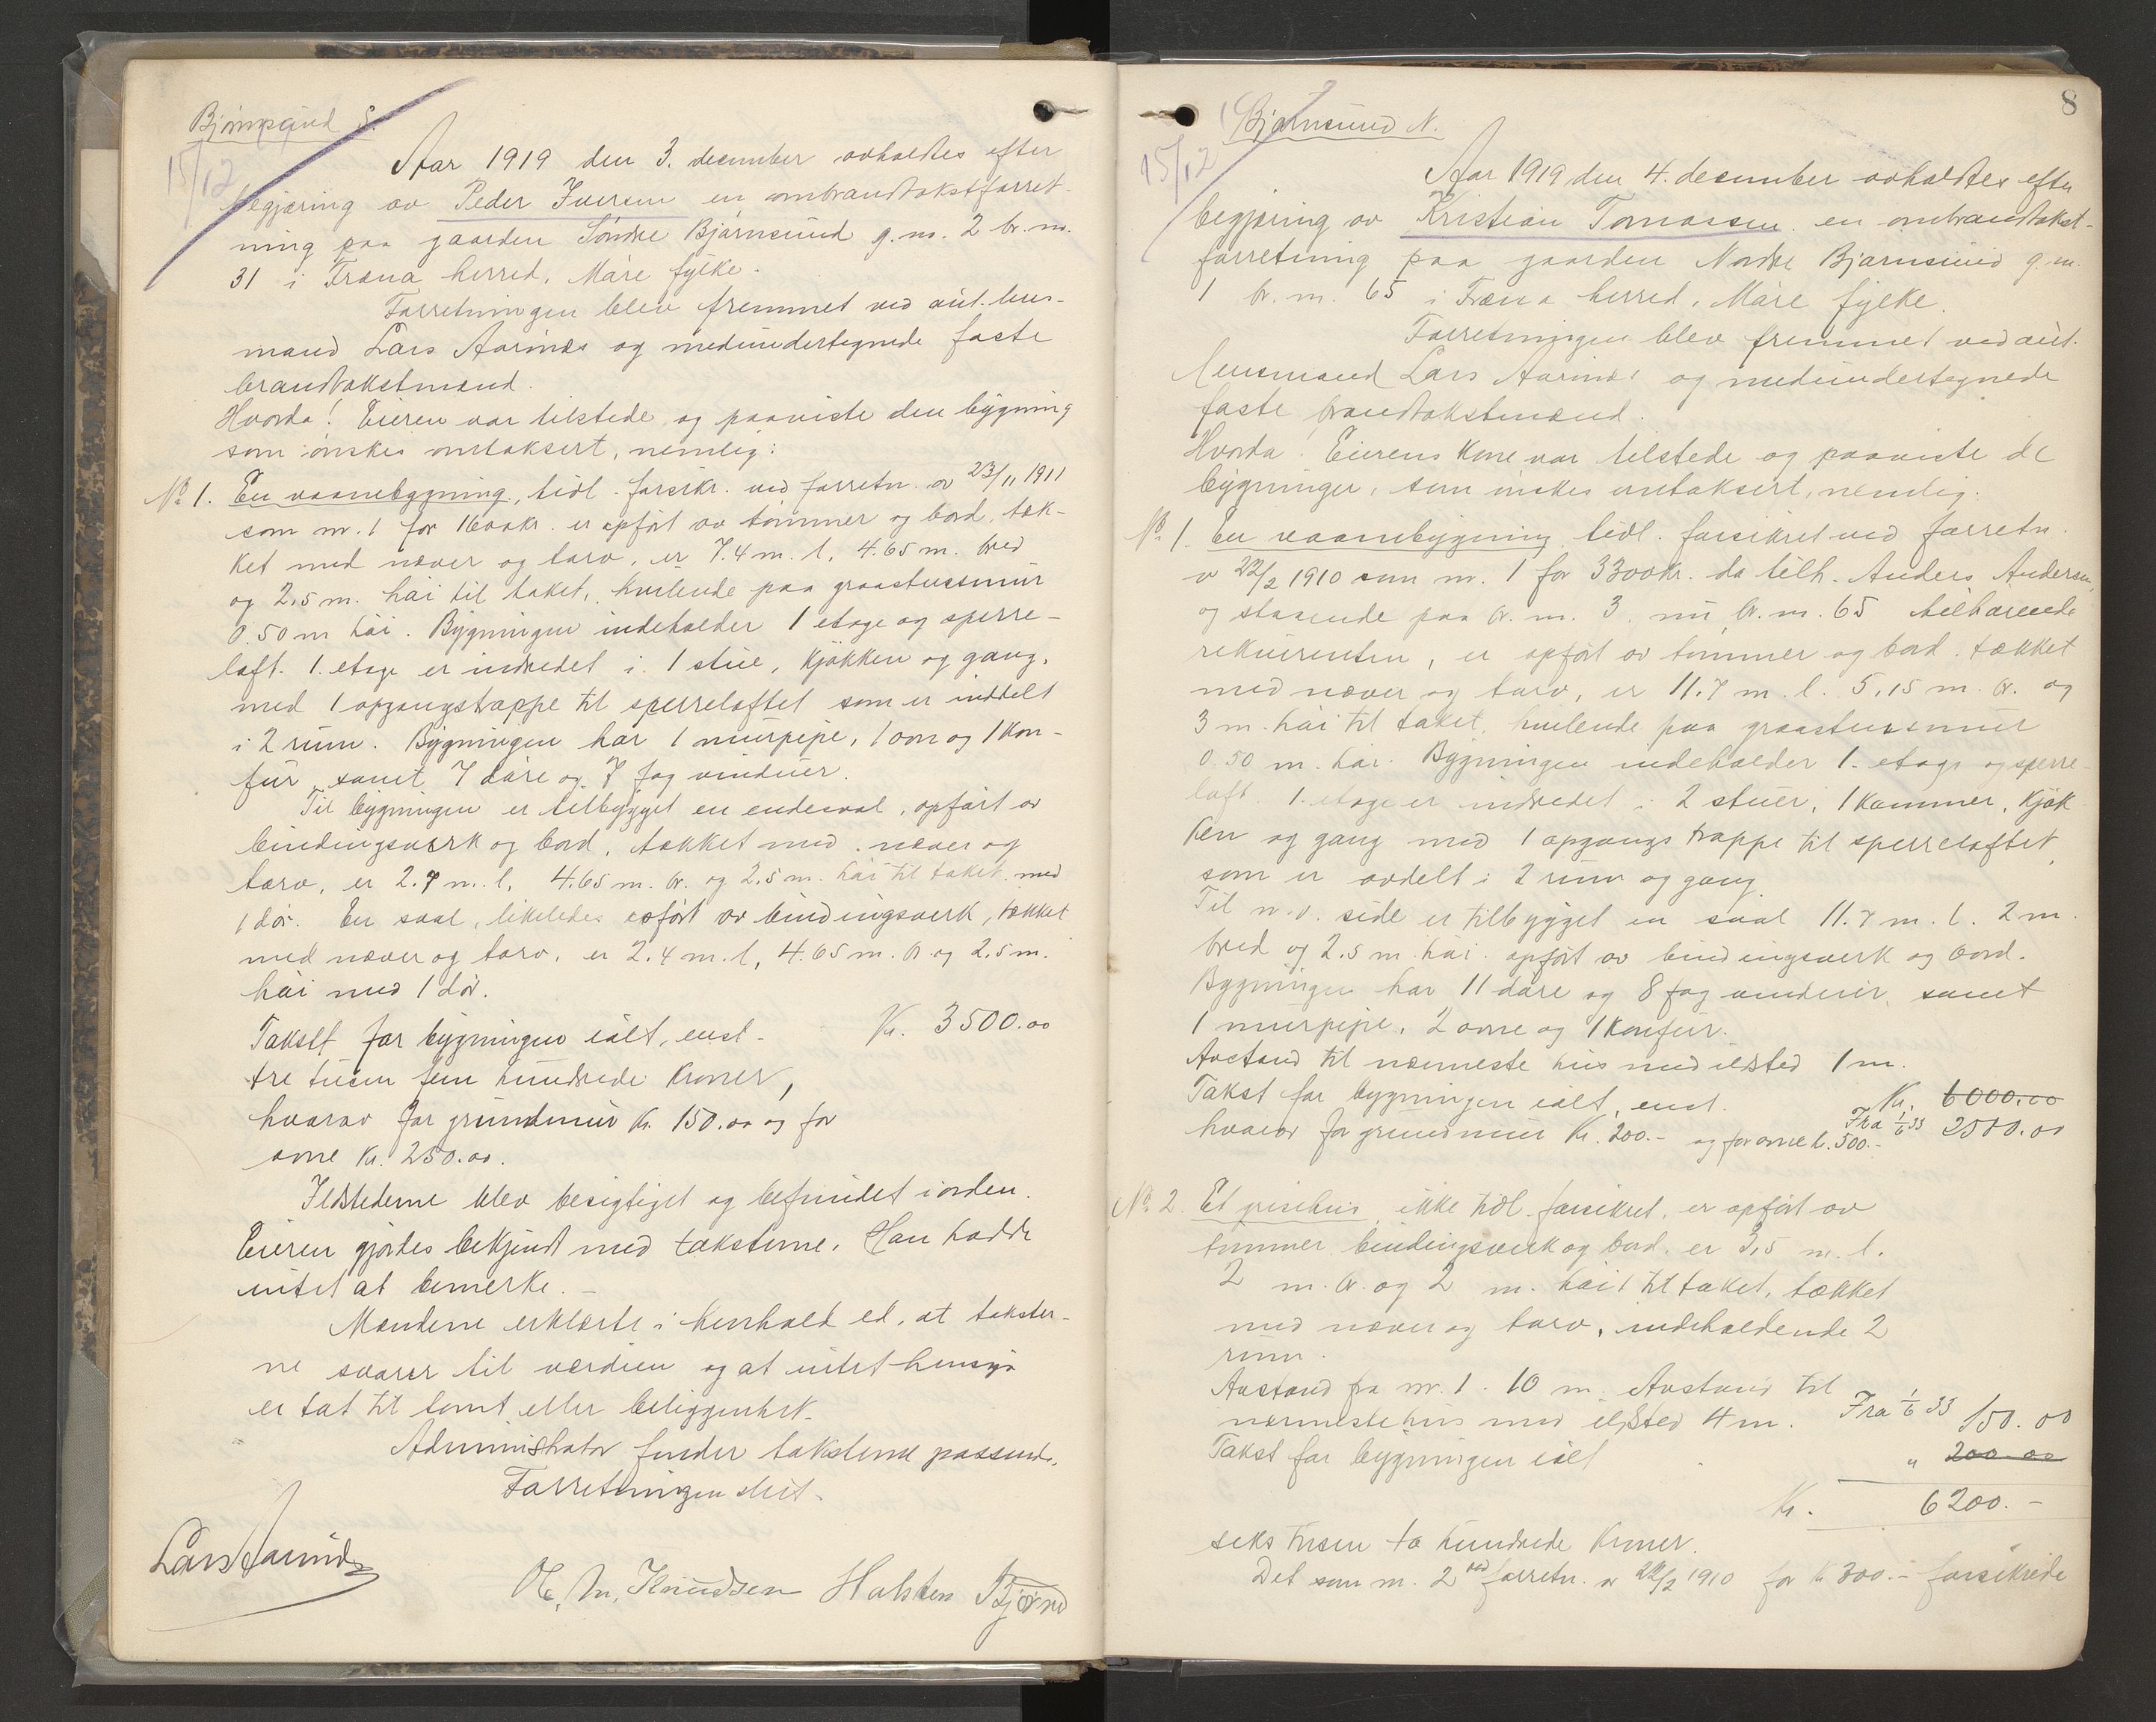 Bjørnsund S.
15/12
Aar 1919 den 3. december avholdtes efter
begjæring av Peder Iversen en ombrandtakstforret-
ning paa gaarden Søndre Bjørnsund g.nr. 2 br.nr.
31 i Fræna herred, Møre fylke.
Forretningen blev fremmet ved aut. lens-
mand Lars Aarinæs og medundertegnede faste
brandtakstmænd.
Hvorda! Eieren var tilstede og paaviste den bygning
som ønskes omtaksert, nemlig:
No 1. En vaanebygning, tidl. forsikr. ved forretn. av 23/11 1911
som nr. 1 for 1600 kr. er opført av tømmer og bord, tæk-
ket med næver og torv, er 7.4 m. l. 4.65 m. bred
og 2,5 m. høi til taket, hvilende paa graastensmur
0.50 m høi. Bygningen indeholder 1 etage og sperre-
loft. 1. etage er indredet i 1 stue, kjøkken og gang,
med 1 opgangstrappe til sperreloftet som er inddelt
i 2 rum. Bygningen har 1 murpipe, 1 ovn og 1 kom-
fur, samt 7 døre og 7 fag vinduer.
Til bygningen er tilbygget en endesval, opført av
bindingsverk og bord, tækket med næver og
torv, er 2.7 m. l. 4.65 m. br. og 2,5 m. høi til taket med
1 dør. En sval, likeledes opført av bindingsverk, tækket
med næver og torv, er 2.4 m. l, 4.65 m. br. og 2,5 m.
høi med 1 dør.
Takst for bygningen ialt, enst. Kr. 3500.00
tre tusen fem hundrede kroner,
hvorav for grundmur kr. 150.00 og for
ovne kr. 250.00.
Ildstederne blev besigtiget og befundet iorden.
Eieren gjordes bekjendt med taksterne. Han hadde
intet at bemerke. -
Mændene erklærte i henhold ed, at takster-
ne svarer til værdien og at intet hensyn
er tat til tomt eller beliggenhet.
Administrator finder taksterne passende.
Forretningen slut.
Lars Aarinæs
O. M. Knudsen Halsten Bjørnø
8
Bjørnsund N.
15/12
Aar 1919 den 4. december avholdtes efter
begjæring av Kristian Tomassen en ombrandtakst-
forretning paa gaarden Nordre Bjørnsund g.nr.
1 br.nr. 65 i Fræna herred, Møre fylke.
Forretningen blev fremmet ved aut.
lensmand Lars Aarinæs og medundertegnede
faste brandtakstmænd.
Hvorda. Eierens kone var tilstede og paaviste de
bygninger, som ønskes omtaksert, nemlig.
No 1. En vaanebygning tidl. forsikret ved forretn.
av 22/2 1910 som nr. 1 for 3300 kr. da tilh. Anders Andersen
og staaende paa br.nr. 3. nu br.nr. 65 tilhørende
rekvirenten, er opført av tømmer og bord, tækket
med næver og torv, er 11.7 m. l. 5,15 m. br. og
3 m. høi til taket, hvilende paa graastensmur
0.50 m. høi. Bygningen indeholder 1. etage og sperre-
loft. 1. etage er indredet i 2 stuer, 1 kammer, kjøk
ken og gang med 1 opgangstrappe til sperreloftet,
som er avdelt i 2 rum og gang.
Til n.v. side er tilbygget en sval 11.7 m. l. 2 m.
bred og 2.5 m. høi. opført av bindingsverk og bord.
Bygningen har 11 døre og 8 fag vinduer, samt
1 murpipe, 2 ovne og 1 komfur.
Avstand til nærmeste hus med ildsted 1 m.
Takst for bygningen ialt, enst. Kr. 6000.00
Fra 1/6 33 2500.00
hvorav for grundmur Kr. 200.- og for ovne k. 500.-
No 2. Et grisehus, ikke tidl. forsikret, er opført av
tømmer, bindingsverk og bord, er 3,5 m. l.
2 m. br. og 2 m. høit til taket, tækket
med næver og torv, indeholdende 2
rum.
Avstand fra nr. 1. 10 m. Avstand til
nærmeste hus med ildsted 4 m. Fra 1/6 33 150.00
Takst for bygningen ialt " 200.00
Kr. 6200.-
seks tusen to hundrede kroner.
Det som nr. 2 ved forretn. av 22/2 1910 for kr 300.- forsikrede